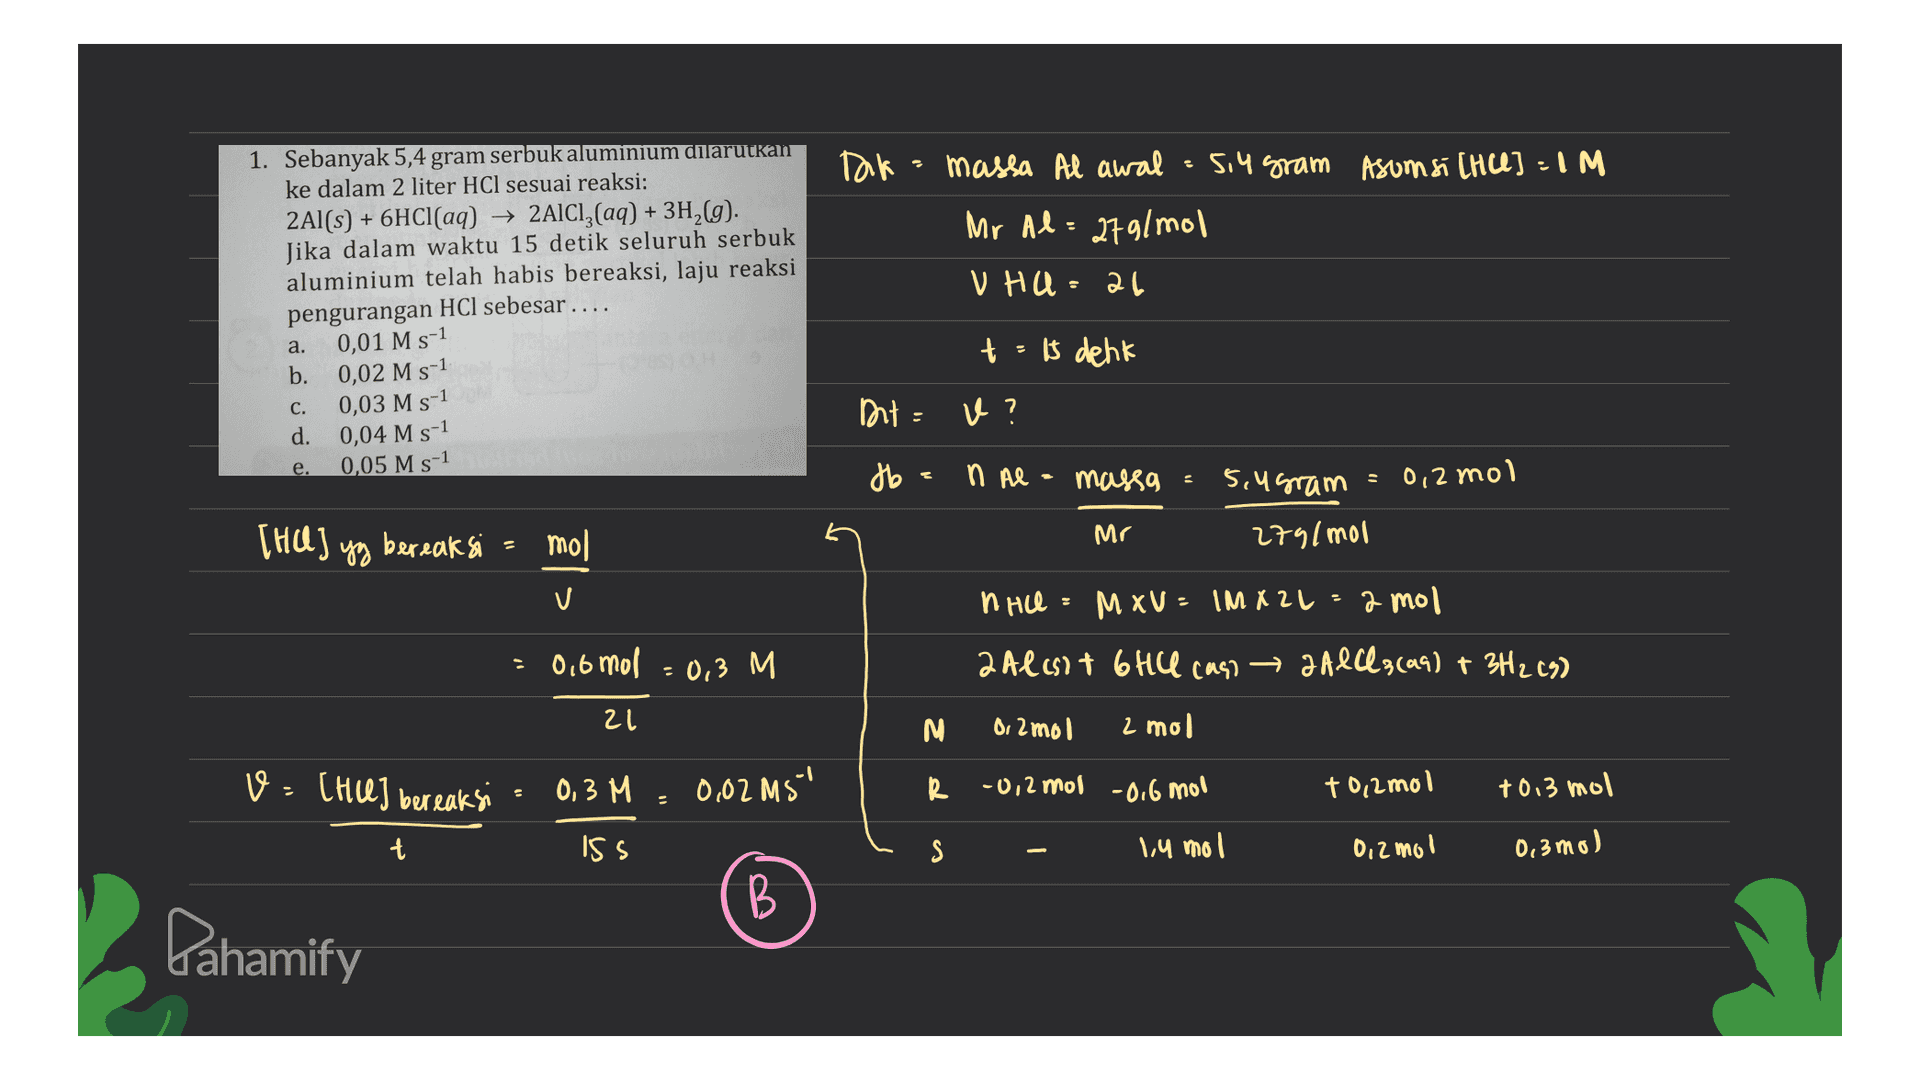 1. Sebanyak 5,4 gram serbuk aluminium dilarutkan
ke dalam 2 liter HCl sesuai reaksi:
2Al(s) + 6HCl(aq) → 2AlCl₃(aq) + 3H₂(g).
Jika dalam waktu 15 detik seluruh serbuk
aluminium telah habis bereaksi, laju reaksi
pengurangan HCl sebesar ....
a. 0,01 M s⁻¹
b. 0,02 M s⁻¹
c. 0,03 M s⁻¹
d. 0,04 M s⁻¹
e. 0,05 M s⁻¹
Dik = massa Al awal = 5,4 gram Asumsi [HCl] = 1 M
Mr Al = 27 g/mol
V HCl = 2L
t = 15 detik
Dit = v ?
Jb = n Al = massa = 5,4 gram = 0,2 mol
Mr 27 g/mol
n HCl = M x V = 1M x 2L = 2 mol
2Al(s) + 6HCl (aq) → 2AlCl₃(aq) + 3H₂ (g)
M 0,2 mol 2 mol
R -0,2 mol -0,6 mol +0,2 mol +0,3 mol
S - 1,4 mol 0,2 mol 0,3 mol
[HCl] yg bereaksi = mol
V
= 0,6 mol = 0,3 M
2L
v = [HCl] bereaksi = 0,3 M = 0,02 Ms⁻¹
t 15 s
B
Pahamify